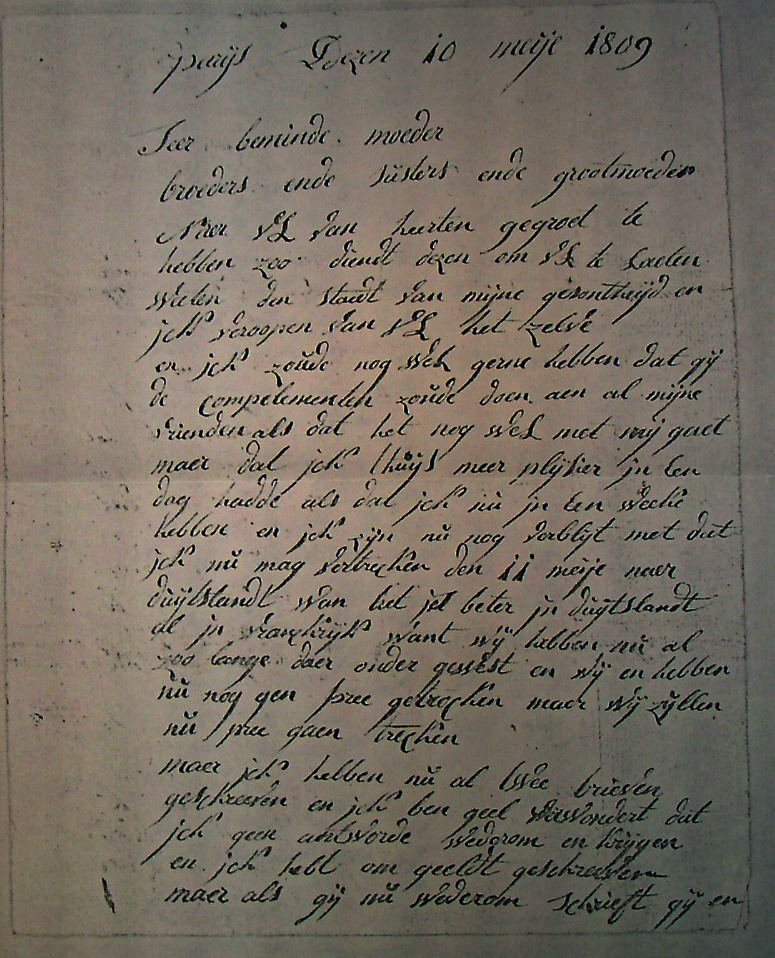 parijs Dezen 10 meije 1809
Seer beminde moeder
broeders ende susters ende grootmoeder
Naer VL van herten gegroet te
hebben zoo diendt dezen om VL te Laeten
weeten den staedt van mijne gesontheijd en
jck veroopen van VL het zelve
en jck zoude nog wel gerne hebben dat gij
de compelementen zoude doen aen al mijne
vrienden als dat het nog wel met mij gaet
maer dat jck thuijs meer plijsier jn Een
dag hadde als dat jck nu jn Een weeke
hebben en jck zijn nu nog verblijt met dat
jck nu mag vertrecken den 11 meije naer
duijtslandt wan het jst beter jn duijtslandt
al jn vranckrijk want wij hebben nu al
zoo lange daer onder gewest en wij en hebben
nu nog gen pree getrocken maer wij zullen
nu pree gaen trecken
maer jck hebben nu al twee brieven
geschreeven en jck ben geel verwondert dat
jck geen antworde wederom en krijgen
en jck hebt om geeldt geschreeven
maer als gij nu wederom schrieft gij en